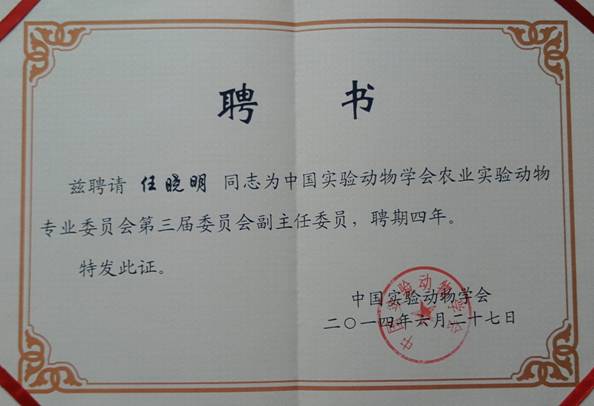 聘 书
兹聘请 任晓明 同志为中国实验动物学会农业实验动物
专业委员会第三届委员会副主任委员，聘期四年。
特发此证。
中国实验动物学会
二〇一四年六月二十七日
中国实验动物学会